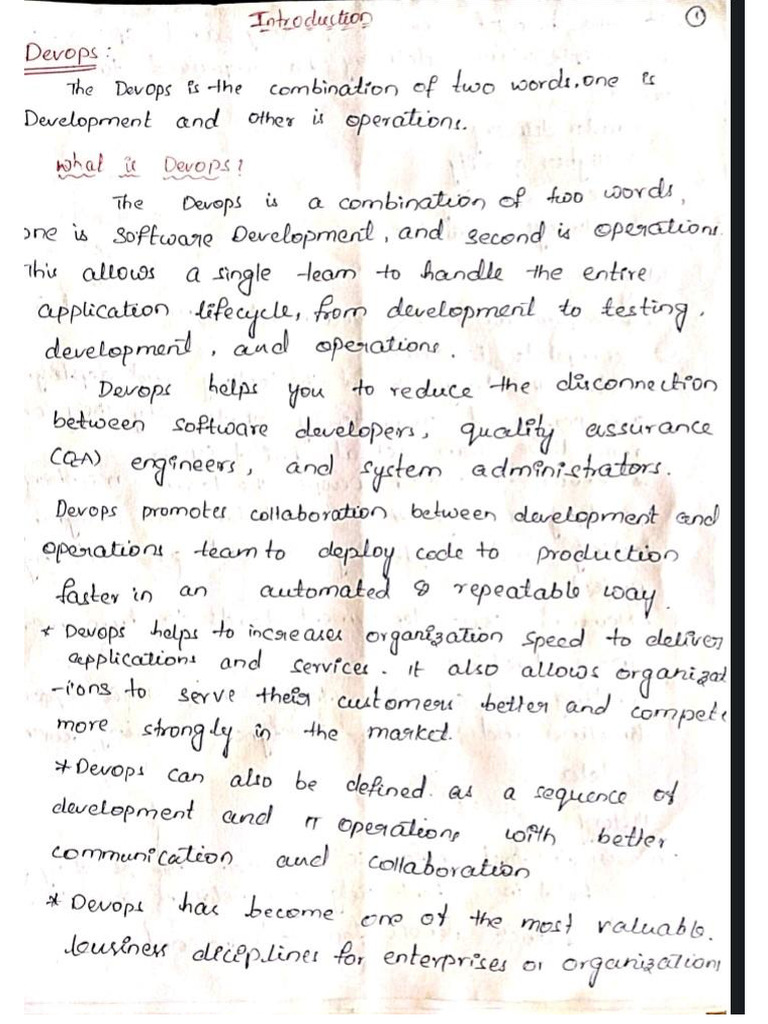 Introduction
1
Devops:
The DevOps is the combination of two words, one is
Development and other is operations.
what is Devops?
The Devops is a combination of two words,
one is Software Development, and second is operations.
This allows a single team to handle the entire
application lifecycle, from development to testing,
development, and operations.
Devops helps you to reduce the disconnection
between software developers, quality assurance
(QA) engineers, and system administrators.
Devops promotes collaboration between development and
operations team to deploy code to production
faster in an automated & repeatable way.
* Devops helps to increases organization speed to deliver
applications and services. it also allows organizat
-ions to serve their customers better and compete
more strongly in the market.
* Devops can also be defined as a sequence of
development and IT operations with better
communication and collaboration
* Devops has become one of the most valuable.
business deciplines for enterprises or organizations